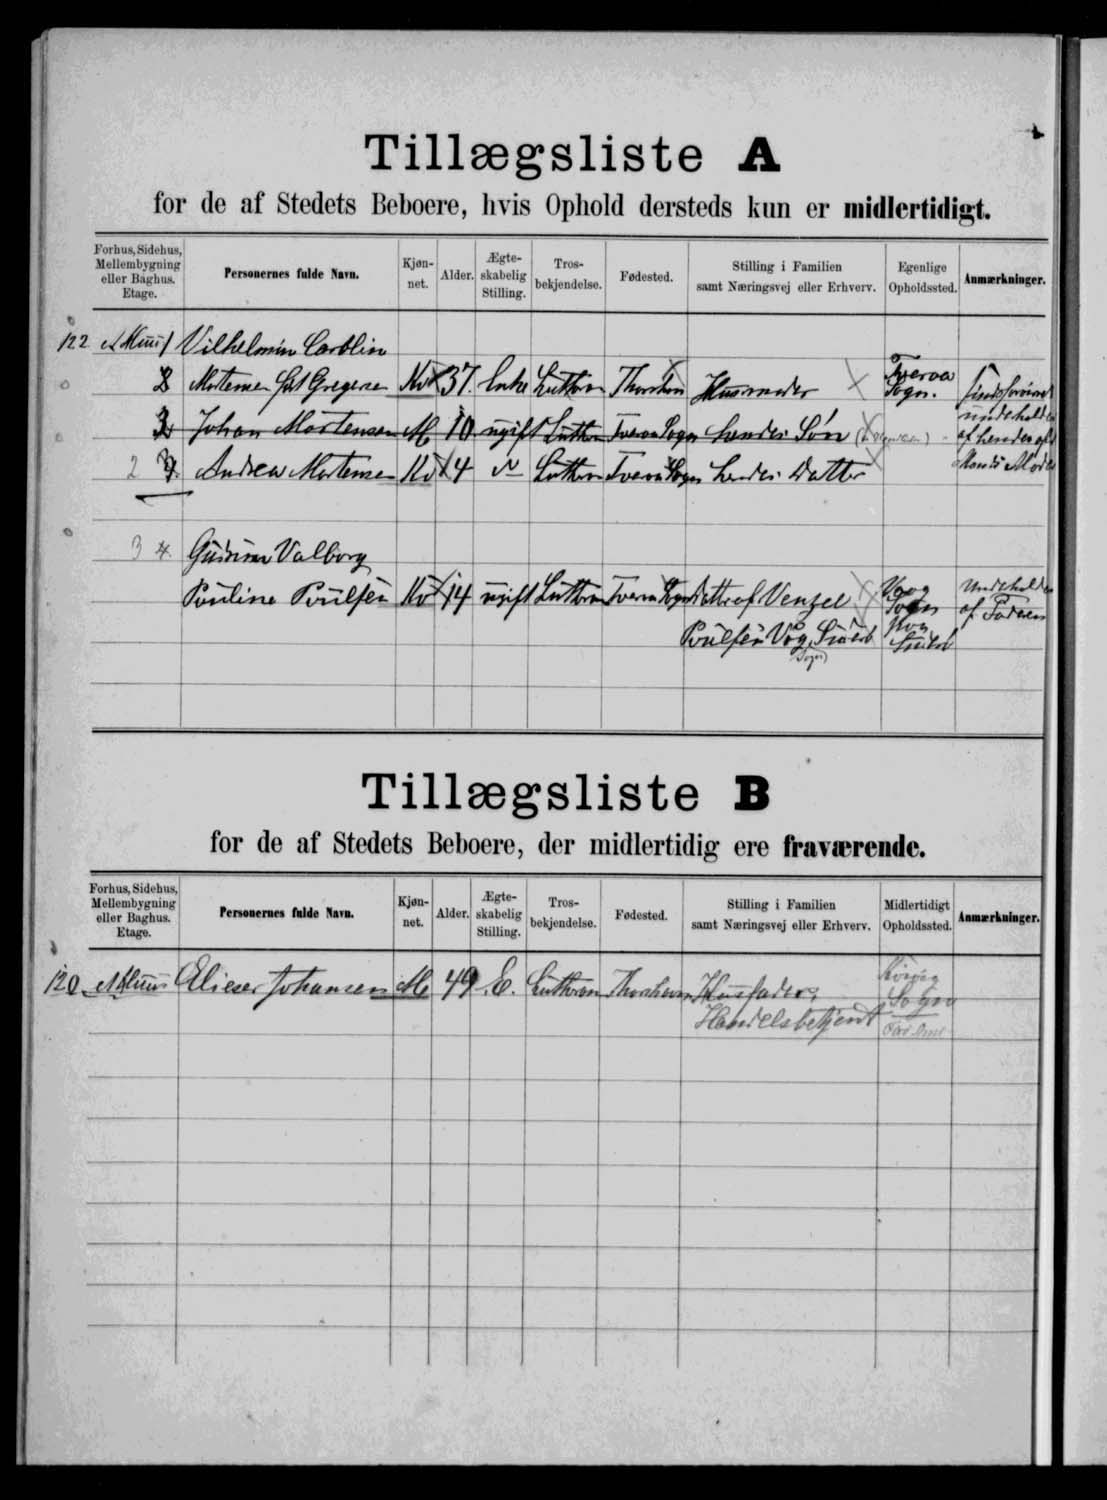 Tillægsliste A
for de af Stedets Beboere, hvis Ophold dersteds kun er midlertidigt.
Forhus, Sidehus, Mellembygning eller Baghus. Etage. Personernes fulde Navn. Kjøn-net. Alder. Ægte-skabelig Stilling. Tros-bekjendelse. Fødested. Stilling i Familien samt Næringsvej eller Erhverv. Egenlige Opholdssted. Anmærkninger.
122 1 Vilhelmin Carolin
2 Mortensen født Gregersen Kv 37. Enke Luthran Thorshavn Husmoder Tveraa Sogn.
3 Johan Mortensen M 10 ugift Luthran Tveraa Sogn hendes Søn
2 Andrea Mortensen Kv 4 Luthran Tveraa Sogn hendes Datter
af hendes
Mands Moder
3 4. Gudrun Valborg
Pouline Poulsen Kv 14 ugift Luthran Tveraa Sogn Datter af Venzel Vaag Sogn Undeholdes af Faderen
Poulsen Vaag
Sogn
Tillægsliste B
for de af Stedets Beboere, der midlertidig ere fraværende.
Forhus, Sidehus, Mellembygning eller Baghus. Etage. Personernes fulde Navn. Kjøn-net. Alder. Ægte-skabelig Stilling. Tros-bekjendelse. Fødested. Stilling i Familien samt Næringsvej eller Erhverv. Midlertidigt Opholdssted. Anmærkninger.
120 Elieser Johansen M 49 E. Luthran Thorshavn Husfader, Sogn
Handelsbetjent